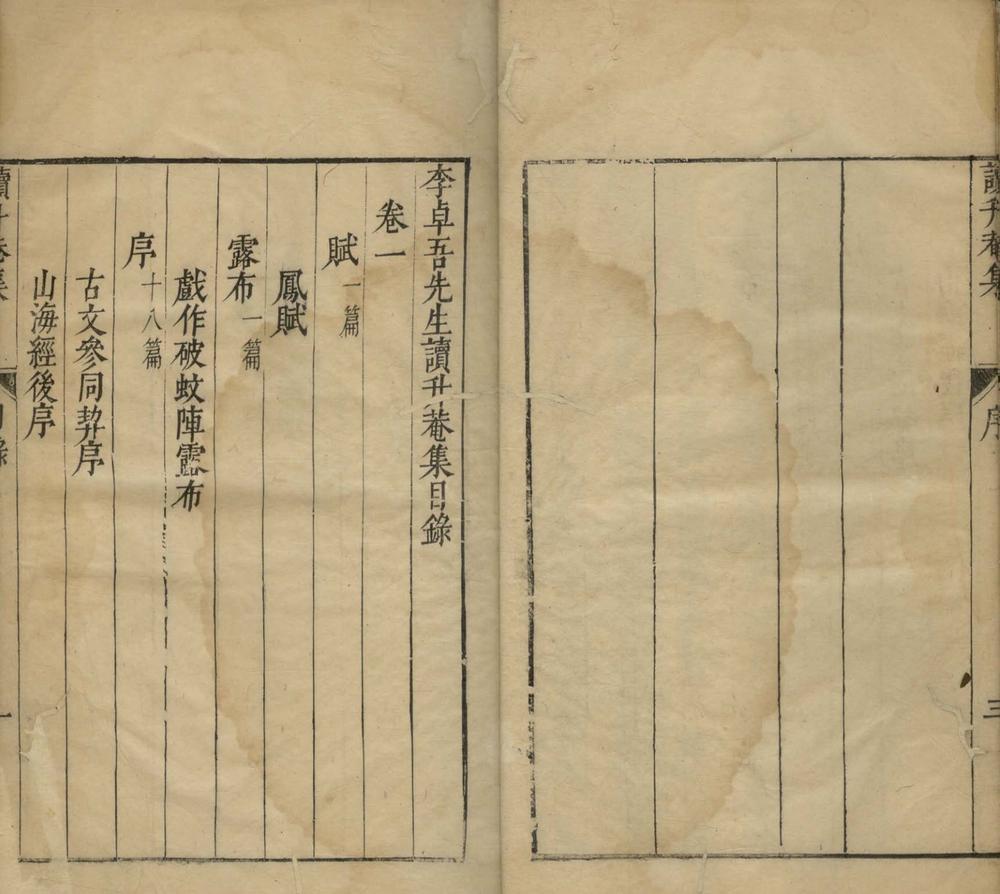 讀升菴集
序
三
李卓吾先生讀升菴集目錄
卷一
賦一篇
鳳賦
露布一篇
戲作破蚊陣露布
序十八篇
古文參同契序
山海經後序
讀升菴集
目錄
一